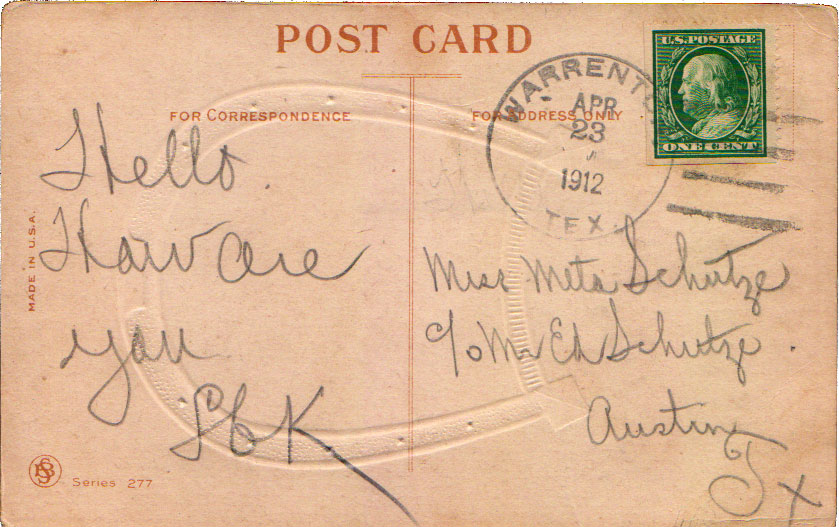 POST CARD
FOR CORRESPONDENCE
FOR ADDRESS ONLY
U.S. POSTAGE
ONE CENT
WARRENTO
APR
23
1912
TEX.
Hello.
How are
you
Miss Meta Schutze
c/o Mr Ed Schutze.
Austin
Tx
MADE IN U.S.A.
Series 277